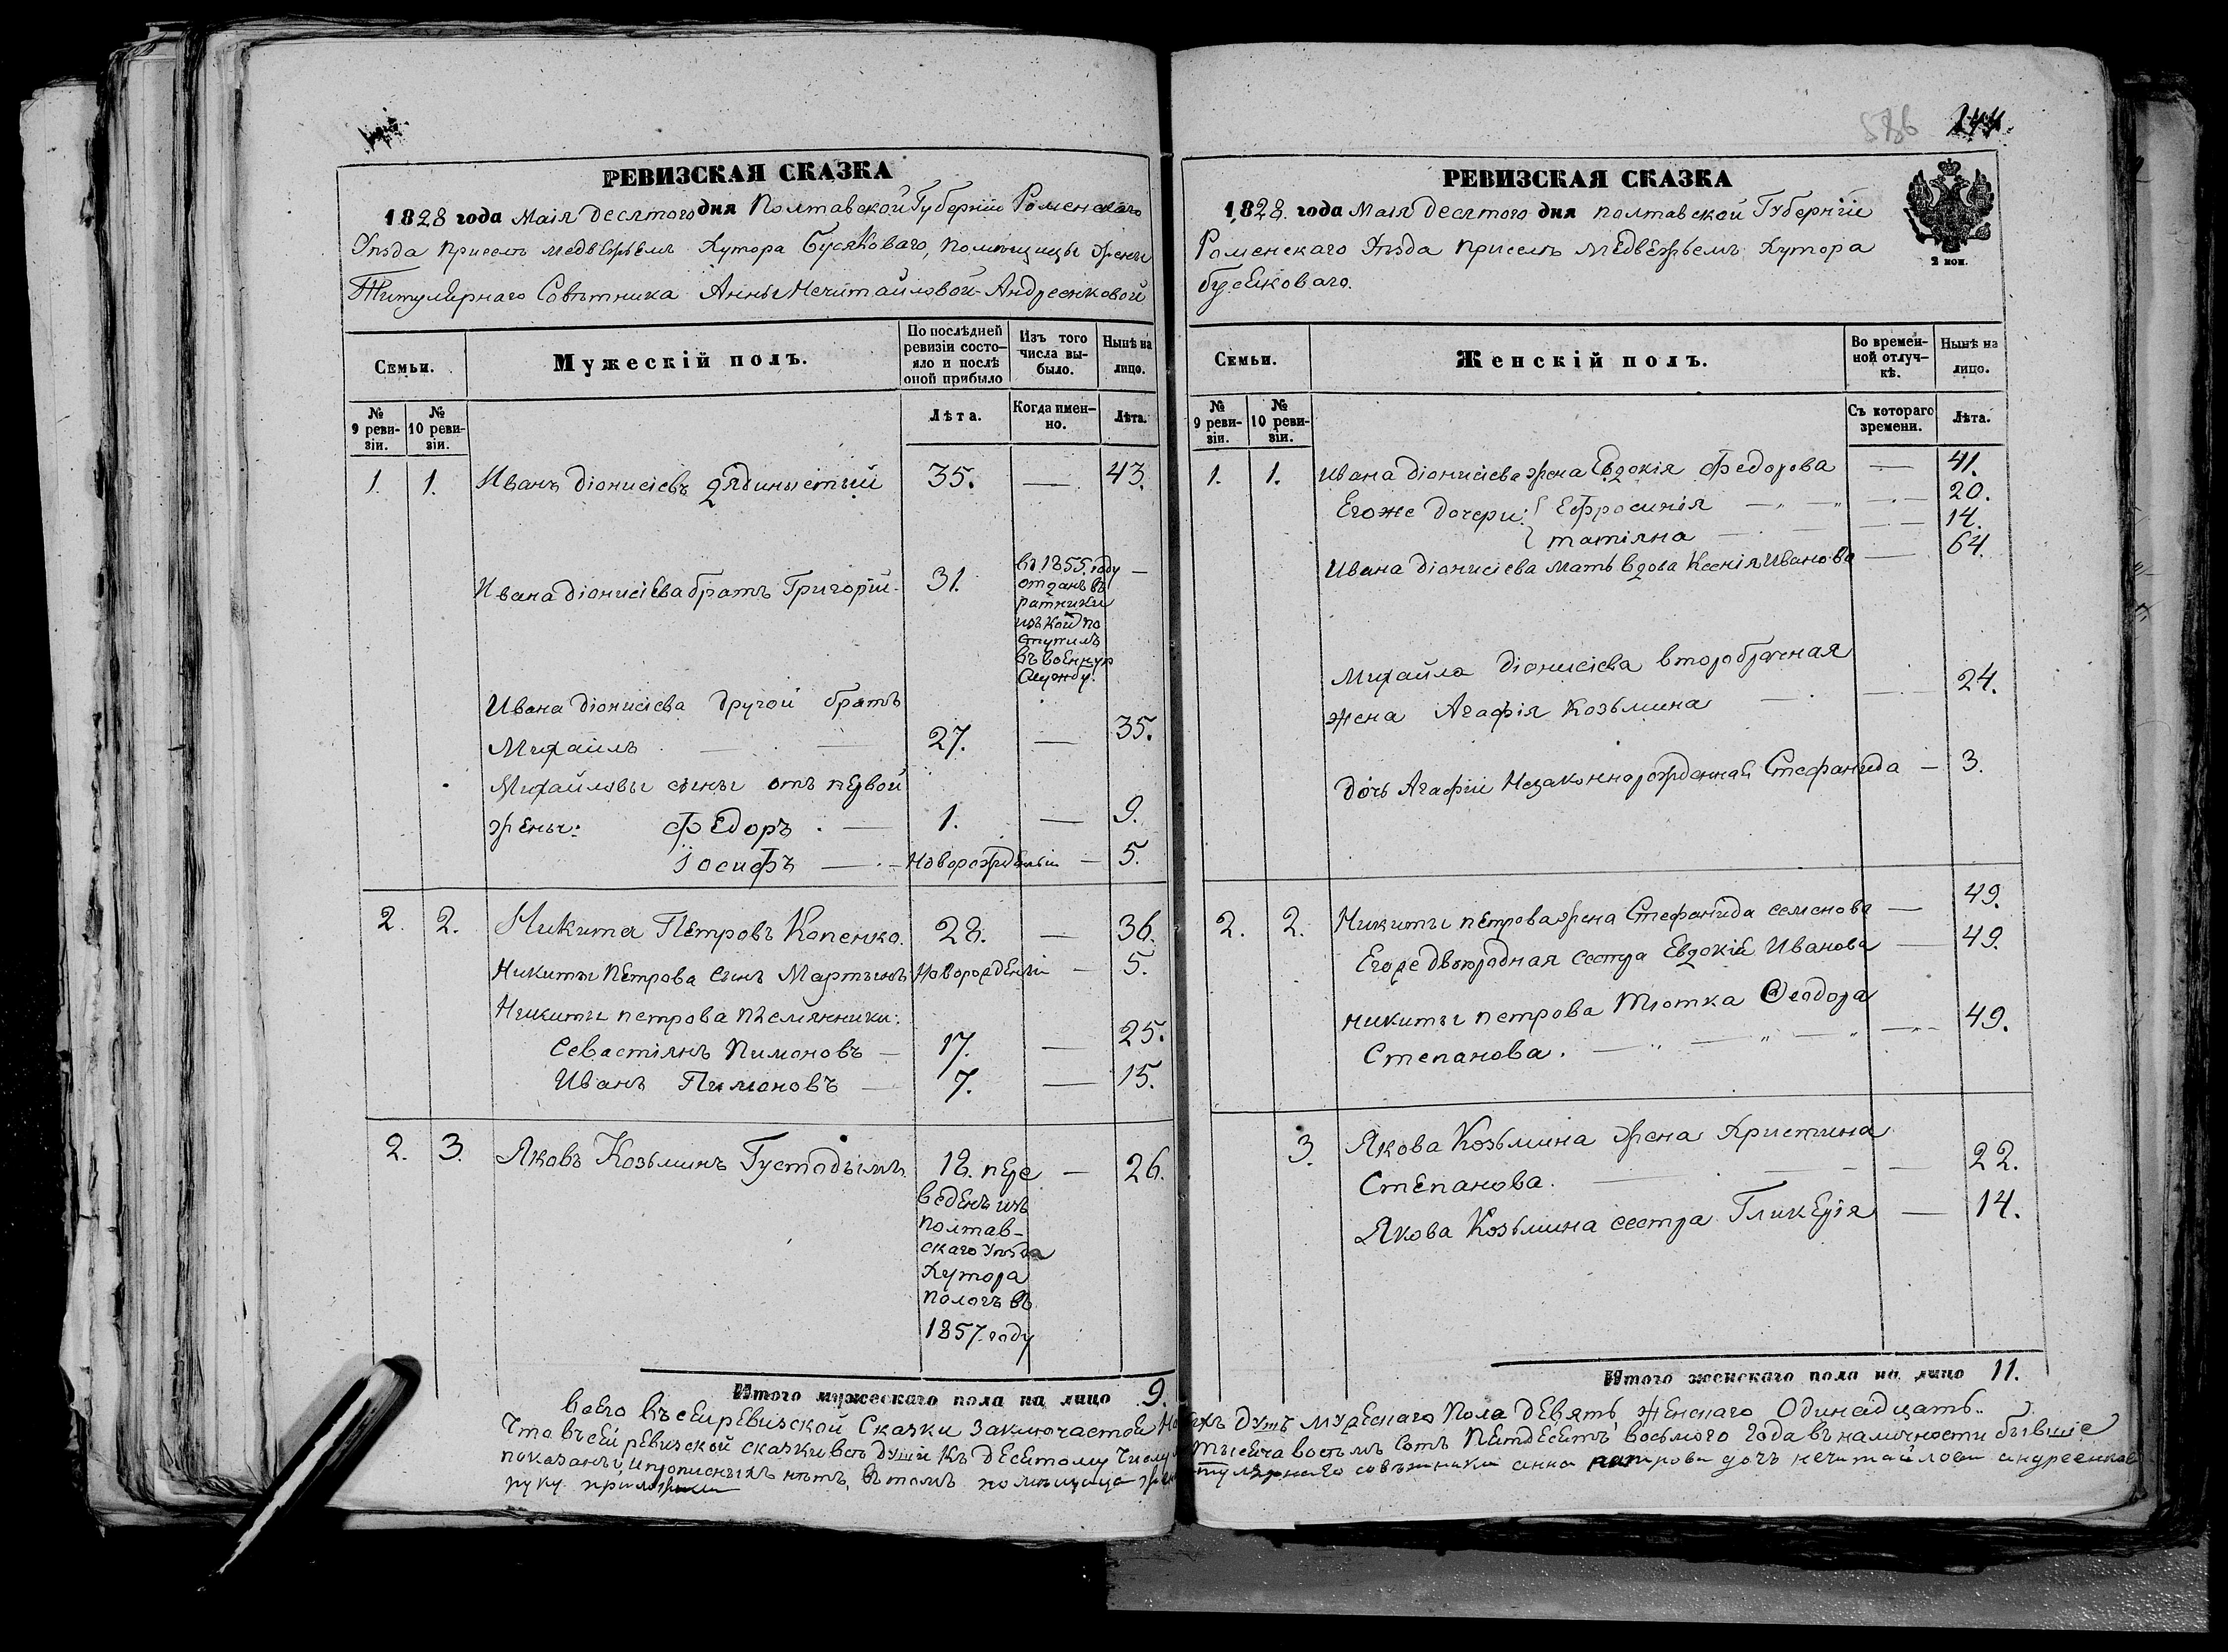 РЕВИЗСКАЯ СКАЗКА
1828 года Маія десятого дня Полтавской Губерніи Роменскаго
Уѣзда при селѣ медвежьемъ Хутора Бусяковаго, помѣщицы жены
Титулярнаго Совѣтника Анны Нечитайловой-Андреенковой
Семьи.
Мужескій полъ.
По послѣдней ревизіи состо-
яло и послѣ
оной прибыло
Изъ того
числа вы-
было.
Нынѣ на
лицо.
№
9 реви-
зіи.
№
10 реви-
зіи.
Лѣта.
Когда имен-
но.
Лѣта.
1. 1. Иванъ діонисіевъ 35. — 43.
Ивана діонисіева братъ Григорій. 31. въ 1855 году —
отданъ въ
ратники
изъ кой по
ступилъ
въ военную
Службу.
Ивана діонисіева другой братъ
Михаилъ — 27. — 35.
Михайловы сыны отъ первой
жены: Федоръ — 1. — 9.
Іосифъ — Новорожденый — 5.
2. 2. Никита Петровъ Копенко. 28. — 36.
Никиты Петрова сынъ Мартынъ Новорожденый — 5.
Никиты петрова племянники:
Севастіянъ Пимоновъ — 17. — 25.
Иванъ Пимоновъ — 7. — 15.
2. 3. Яковъ Козьминъ Густодымъ 18. пере — 26.
веденъ изъ
полтав-
скаго Уѣзда
Хутора
пологъ въ
1857. году
Итого мужескаго пола на лицо 9.
586
РЕВИЗСКАЯ СКАЗКА
1828. года Маія десятого дня полтавской Губерніи
Роменскаго Уѣзда при селѣ Медвежьемъ Хутора
бусековаго.
2 коп.
Семьи.
Женскій полъ.
Во времен-
ной отлуч-
кѣ.
Нынѣ на
лицо.
№
9 реви-
зіи.
№
10 реви-
зіи.
Съ котораго
времени.
Лѣта.
1. 1. Ивана діонисіева жена Евдокія Федорова — 41.
Егоже дочери: Ефросинія — 20.
татіяна — 14.
Ивана діонисіева мать вдова Ксенія Иванова — 64.
Михайла діонисіева второбрачная
жена Агафія Козьмина — 24.
дочь Агафіи Незаконнорожденная Стефанида — 3.
2. 2. Никиты петрова жена Стефанида семенова — 49.
Егоже двоюродная сестра Евдокія Иванова — 49.
Никиты петрова Тіотка Феодора
Степанова. — 49.
3. Якова Козьмина жена Христина
Степанова. — 22.
Якова Козьмина сестра Гликерія — 14.
Итого женскаго пола на лицо 11.
Всего въ сей ревизской Сказки Заключается душъ мужескаго Пола девять, женскаго Одинадцать.
Что въ сей ревизской сказки всѣ души къ десятому Числу тысяча восемь Сотъ Пятдесятъ восьмого года въ наличности бывшіе
показаны, и прописныхъ нѣтъ, въ томъ помѣщица совѣтника анна петрова дочь нечитайлова андреенкова
руку приложила